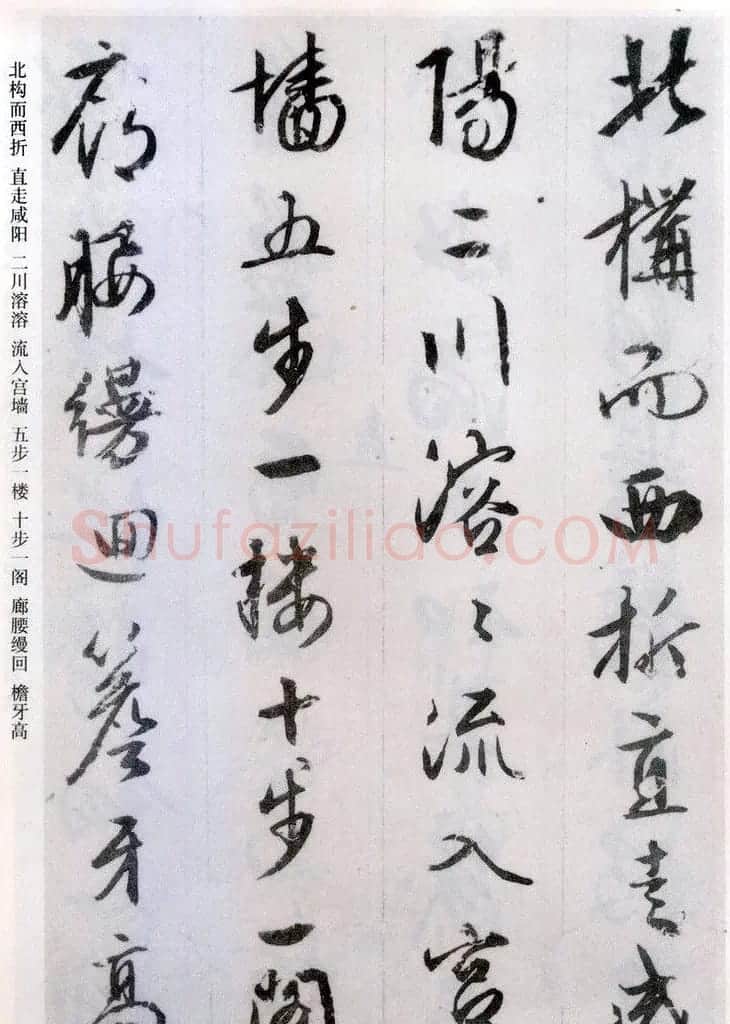 北構而西折直走咸
陽二川溶〻流入宫
墻五步一樓十步一閣
廊腰縵迴簷牙高
北构而西折 直走咸阳 二川溶溶 流入宫墙 五步一楼 十步一阁 廊腰缦回 檐牙高
Shufaziliao.COM